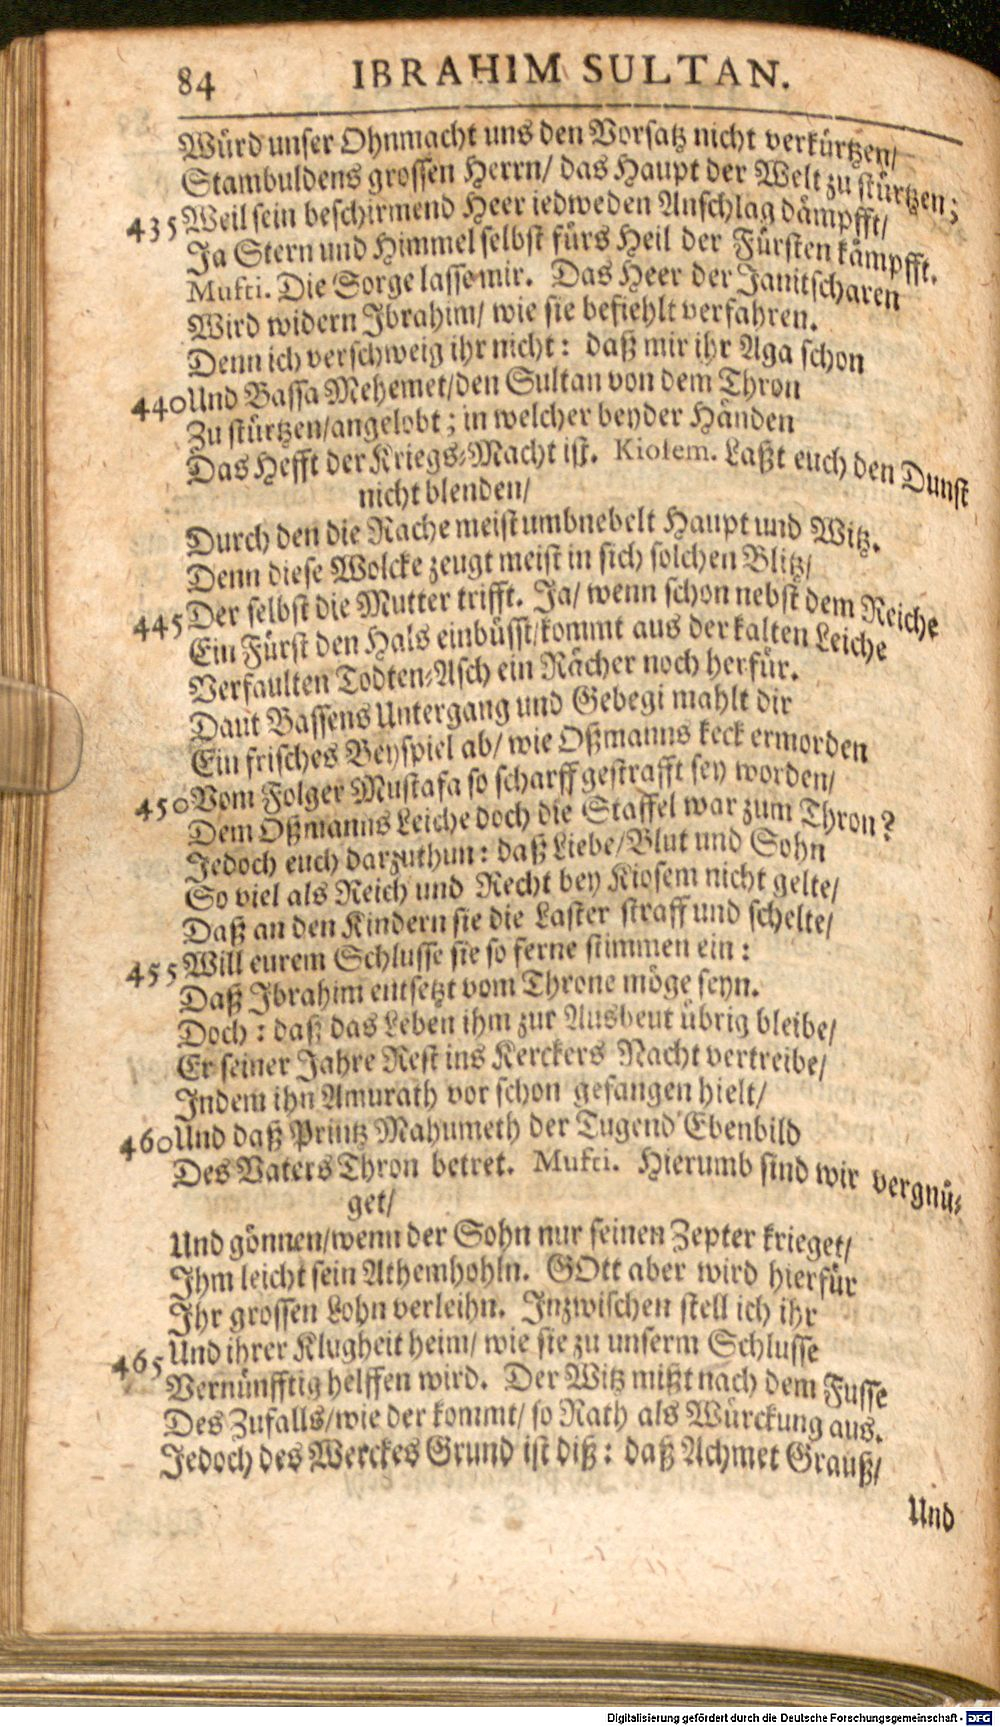 84 IBRAHIM SULTAN.
Würd unser Ohnmacht uns den Vorsatz nicht verkürtzen/
Stambuldens grossen Herrn/ das Haupt der Welt zu stürtzen;
435 Weil sein beschirmend Heer iedweden Anschlag dämpfft/
Ja Stern und Himmel selbst fürs Heil der Fürsten kämpfft.
Mufti. Die Sorge lasse mir. Das Heer der Janitscharen
Wird widern Ibrahim/ wie sie befiehlt verfahren.
Denn ich verschweig ihr nicht: daß mir ihr Aga schon
440 Und Bassa Mehemet/ den Sultan von dem Thron
Zu stürtzen/ angelobt; in welcher beyder Händen
Das Hefft der Kriegs-Macht ist. Kiosem. Laßt euch den Dunst
nicht blenden/
Durch den die Rache meist umbnebelt Haupt und Witz.
Denn diese Wolcke zeugt meist in sich solchen Blitz/
445 Der selbst die Mutter trifft. Ja/ wenn schon nebst dem Reiche
Ein Fürst den Hals einbüsst/ kommt aus der kalten Leiche
Verfaulten Todten-Asch ein Rächer noch herfür.
Daut Bassens Untergang und Gebegi mahlt dir
Ein frisches Beyspiel ab/ wie Oßmanns keck ermorden
450 Vom Folger Mustafa so scharff gestrafft sey worden/
Dem Oßmanns Leiche doch die Staffel war zum Thron?
Jedoch euch darzuthun: daß Liebe/ Blut und Sohn
So viel als Reich und Recht bey Kiosem nicht gelte/
Daß an den Kindern sie die Laster straff und schelte/
455 Will eurem Schlusse sie so ferne stimmen ein:
Daß Ibrahim entsetzt vom Throne möge seyn.
Doch: daß das Leben ihm zur Ausbeut übrig bleibe/
Er seiner Jahre Rest ins Kerckers Nacht vertreibe/
Indem ihn Amurath vor schon gefangen hielt/
460 Und daß Printz Mahumeth der Tugend Ebenbild
Des Vaters Thron betret. Mufti. Hierumb sind wir vergnü-
get/
Und gönnen/ wenn der Sohn nur seinen Zepter krieget/
Ihm leicht sein Athemhohln. GOtt aber wird hierfür
Ihr grossen Lohn verleihn. Inzwischen stell ich ihr
465 Und ihrer Klugheit heim/ wie sie zu unserm Schlusse
Vernünfftig helffen wird. Der Witz mißt nach dem Fusse
Des Zufalls/ wie der kommt/ so Rath als Würckung aus.
Jedoch des Werckes Grund ist diß: daß Achmet Grauß/
Und
Digitalisierung gefördert durch die Deutsche Forschungsgemeinschaft - DFG